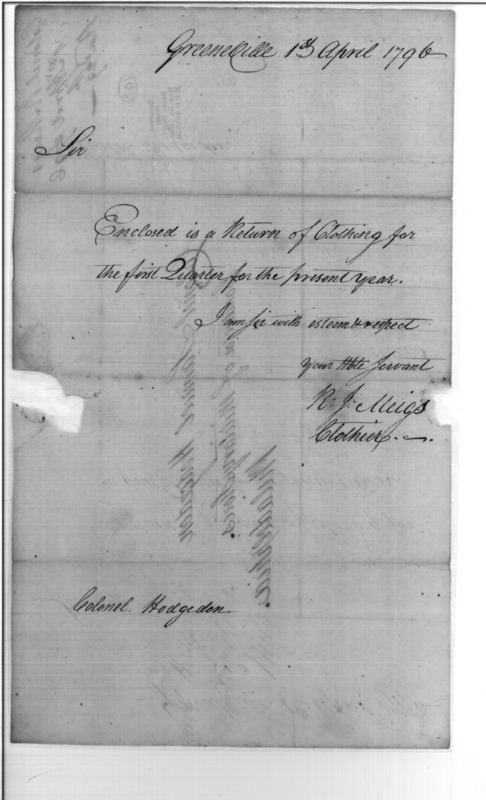 Greeneville 1st April 1796
Sir
Enclosed is a Return of Clothing for
the first Quarter for the present year.
I am Sir with esteem & respect
your Hble Servant
R. J. Meigs
Clothier
Colonel Hodgdon